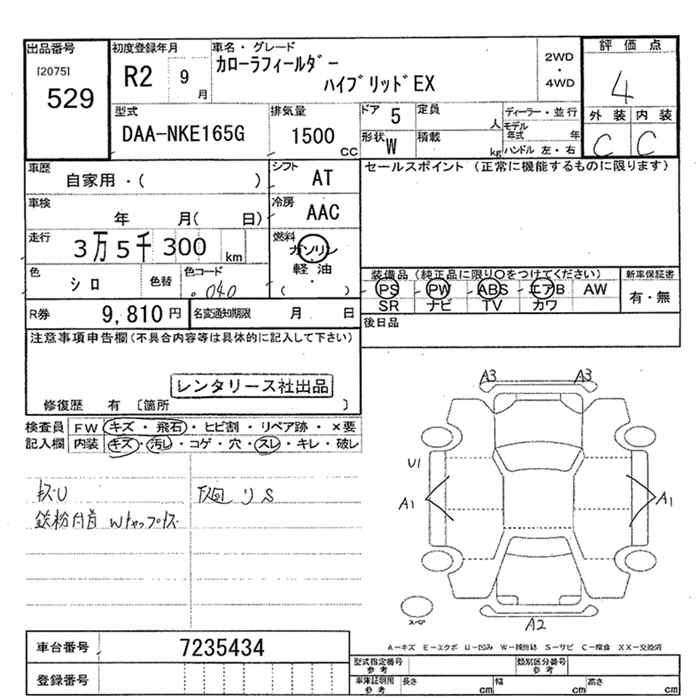 出品番号 初度登録年月 車名・グレード 評価点
[2075] R2 9月 カローラフィールダー 2WD・4WD 4
529 ハイブリッドEX 外装 内装
型式 排気量 ドア 5 定員 人 ディーラー・並行 C C
DAA-NKE165G 1500 CC 形状 W 積載 kg モデル年式 年 ハンドル 左・右
車歴 シフト セールスポイント (正常に機能するものに限ります)
自家用・( ) AT
車検 冷房
年 月( 日) AAC
走行 燃料
3万5千300 km ガソリン
色 色替 色コード 軽油
シロ 040 ・( )
装備品(純正品に限り○をつけてください) 新車保証書
PS PW ABS エアB AW 有・無
SR ナビ TV カワ
R券 9,810円 名変通知期限 月 日 後日品
注意事項申告欄(不具合内容等は具体的に記入して下さい)
レンタリース社出品
修復歴 有 〔箇所 〕
検査員 FW キズ・飛石・ヒビ割・リペア跡・×要
記入欄 内装 キズ・汚レ・コゲ・穴・スレ・キレ・破レ
キズU 下廻リS
鉄粉付着 Wキャップキズ
A3 A3
U1
A1 A1
A2
スペア
A-キズ E-エクボ U-凹み W-補修跡 S-サビ C-腐食 XX-交換済
車台番号 7235434
登録番号
型式指定番号 参考 類別区分番号 参考
車庫証明用 参考 長さ cm 幅 cm 高さ cm